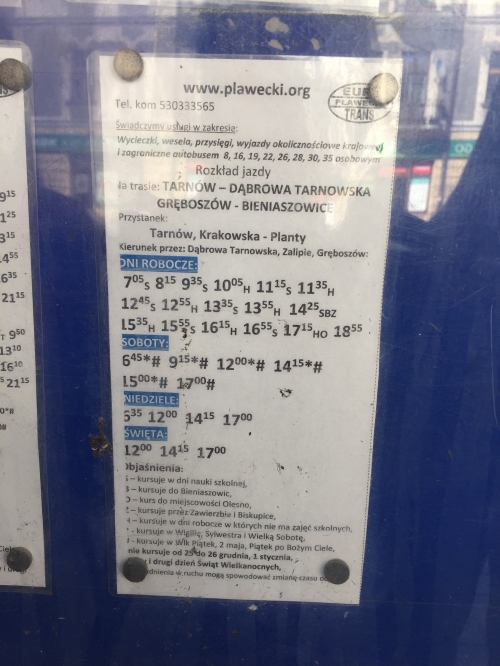 www.plawecki.org
EURO
PLAWECKI
TRANS
Tel. kom 530333565
Świadczymy usługi w zakresie:
Wycieczki, wesela, przysięgi, wyjazdy okolicznościowe krajowe
i zagraniczne autobusem 8, 16, 19, 22, 26, 28, 30, 35 osobowym
Rozkład jazdy
Na trasie: TARNÓW – DĄBROWA TARNOWSKA
GRĘBOSZÓW - BIENIASZOWICE
Przystanek:
Tarnów, Krakowska - Planty
Kierunek przez: Dąbrowa Tarnowska, Zalipie, Gręboszów:
DNI ROBOCZE:
7⁰⁵S 8¹⁵ 9³⁵S 10⁰⁵H 11¹⁵S 11³⁵H
12⁴⁵S 12⁵⁵H 13³⁵S 13⁵⁵H 14²⁵SBZ
15³⁵H 15⁵⁵S 16¹⁵H 16⁵⁵S 17¹⁵HO 18⁵⁵
SOBOTY:
6⁴⁵*# 9¹⁵*# 12⁰⁰*# 14¹⁵*#
15⁰⁰*# 17⁰⁰#
NIEDZIELE:
12⁰⁰ 14¹⁵ 17⁰⁰
ŚWIĘTA:
12⁰⁰ 14¹⁵ 17⁰⁰
Objaśnienia:
– kursuje w dni nauki szkolnej,
– kursuje do Bieniaszowic,
– kurs do miejscowości Olesno,
– kursuje przez Zawierzbie i Biskupice,
– kursuje w dni robocze w których nie ma zajęć szkolnych,
- kursuje w Wigilię, Sylwestra i Wielką Sobotę,
- kursuje w Wlk Piątek, 2 maja, Piątek po Bożym Ciele,
nie kursuje od 25 do 26 grudnia, 1 stycznia,
i drugi dzień Świąt Wielkanocnych,
w ruchu mogą spowodować zmianę czasu